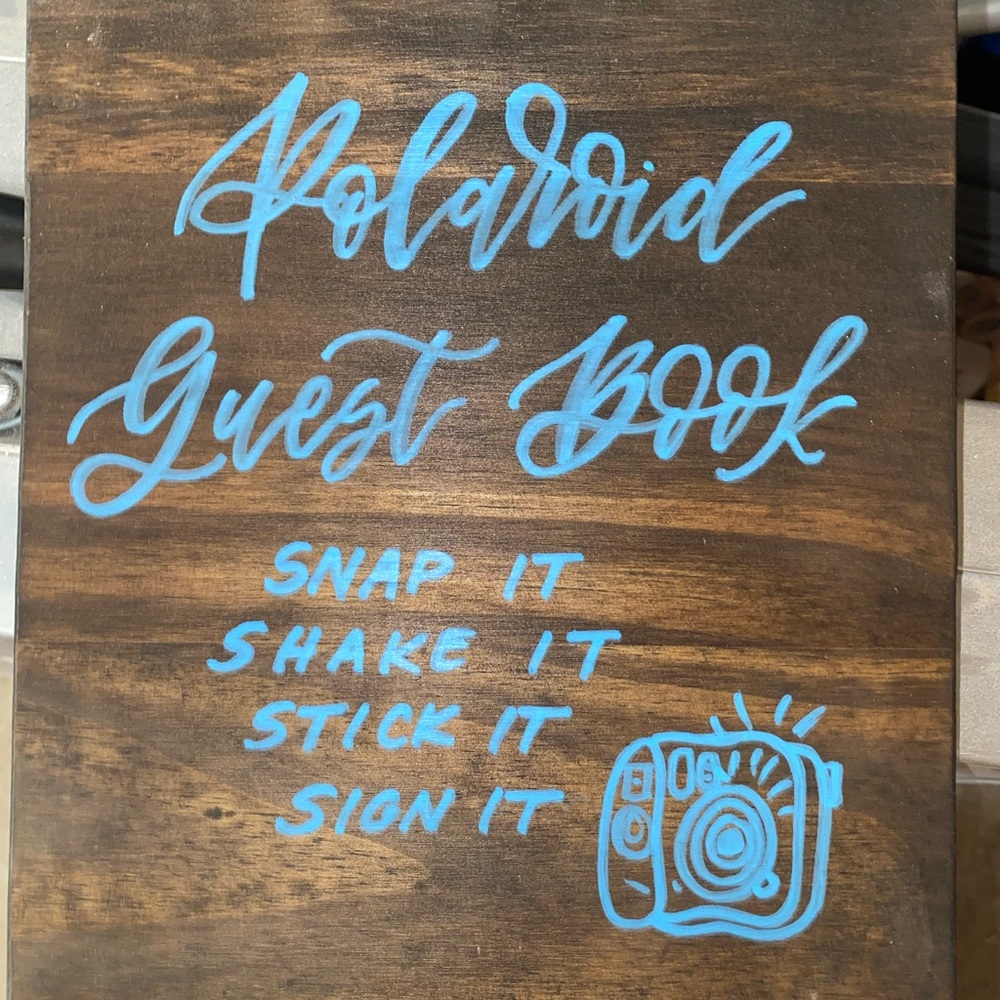 Polaroid
Guest Book
SNAP IT
SHAKE IT
STICK IT
SIGN IT